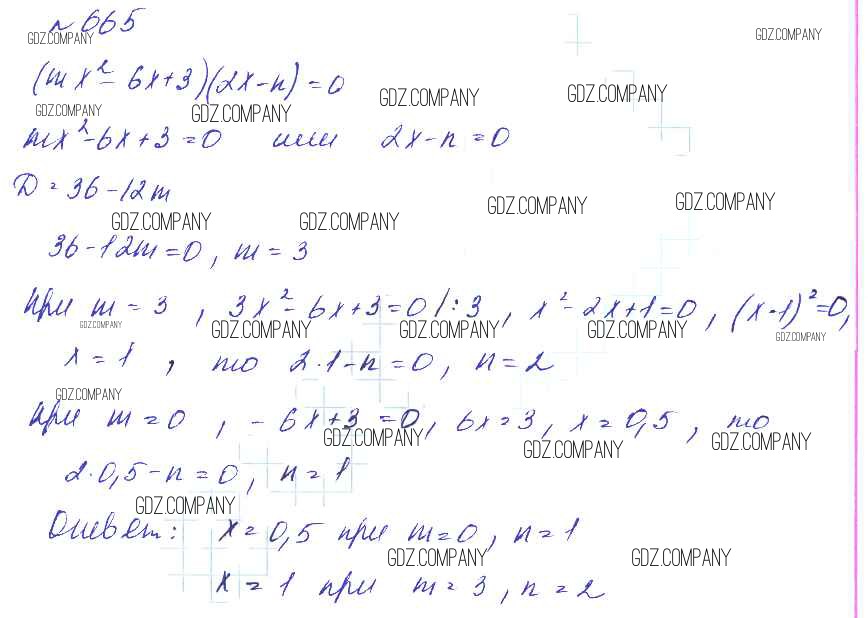 № 665
GDZ.COMPANY GDZ.COMPANY
(mx² - 6x+3)(2x-n) = 0
GDZ.COMPANY GDZ.COMPANY GDZ.COMPANY GDZ.COMPANY
mx² - 6x+3 = 0 или 2x-n = 0
D = 36-12m
GDZ.COMPANY GDZ.COMPANY GDZ.COMPANY GDZ.COMPANY
36-12m = 0, m = 3
при m = 3, 3x² - 6x+3 = 0 /:3, x² - 2x+1 = 0, (x-1)² = 0,
GDZ.COMPANY GDZ.COMPANY GDZ.COMPANY GDZ.COMPANY GDZ.COMPANY
x = 1, то 2·1-n = 0, n = 2
GDZ.COMPANY
при m = 0, - 6x+3 = 0, 6x = 3, x = 0,5, то
GDZ.COMPANY GDZ.COMPANY GDZ.COMPANY
2·0,5-n = 0, n = 1
GDZ.COMPANY
Ответ: x = 0,5 при m = 0, n = 1
GDZ.COMPANY GDZ.COMPANY
x = 1 при m = 3, n = 2